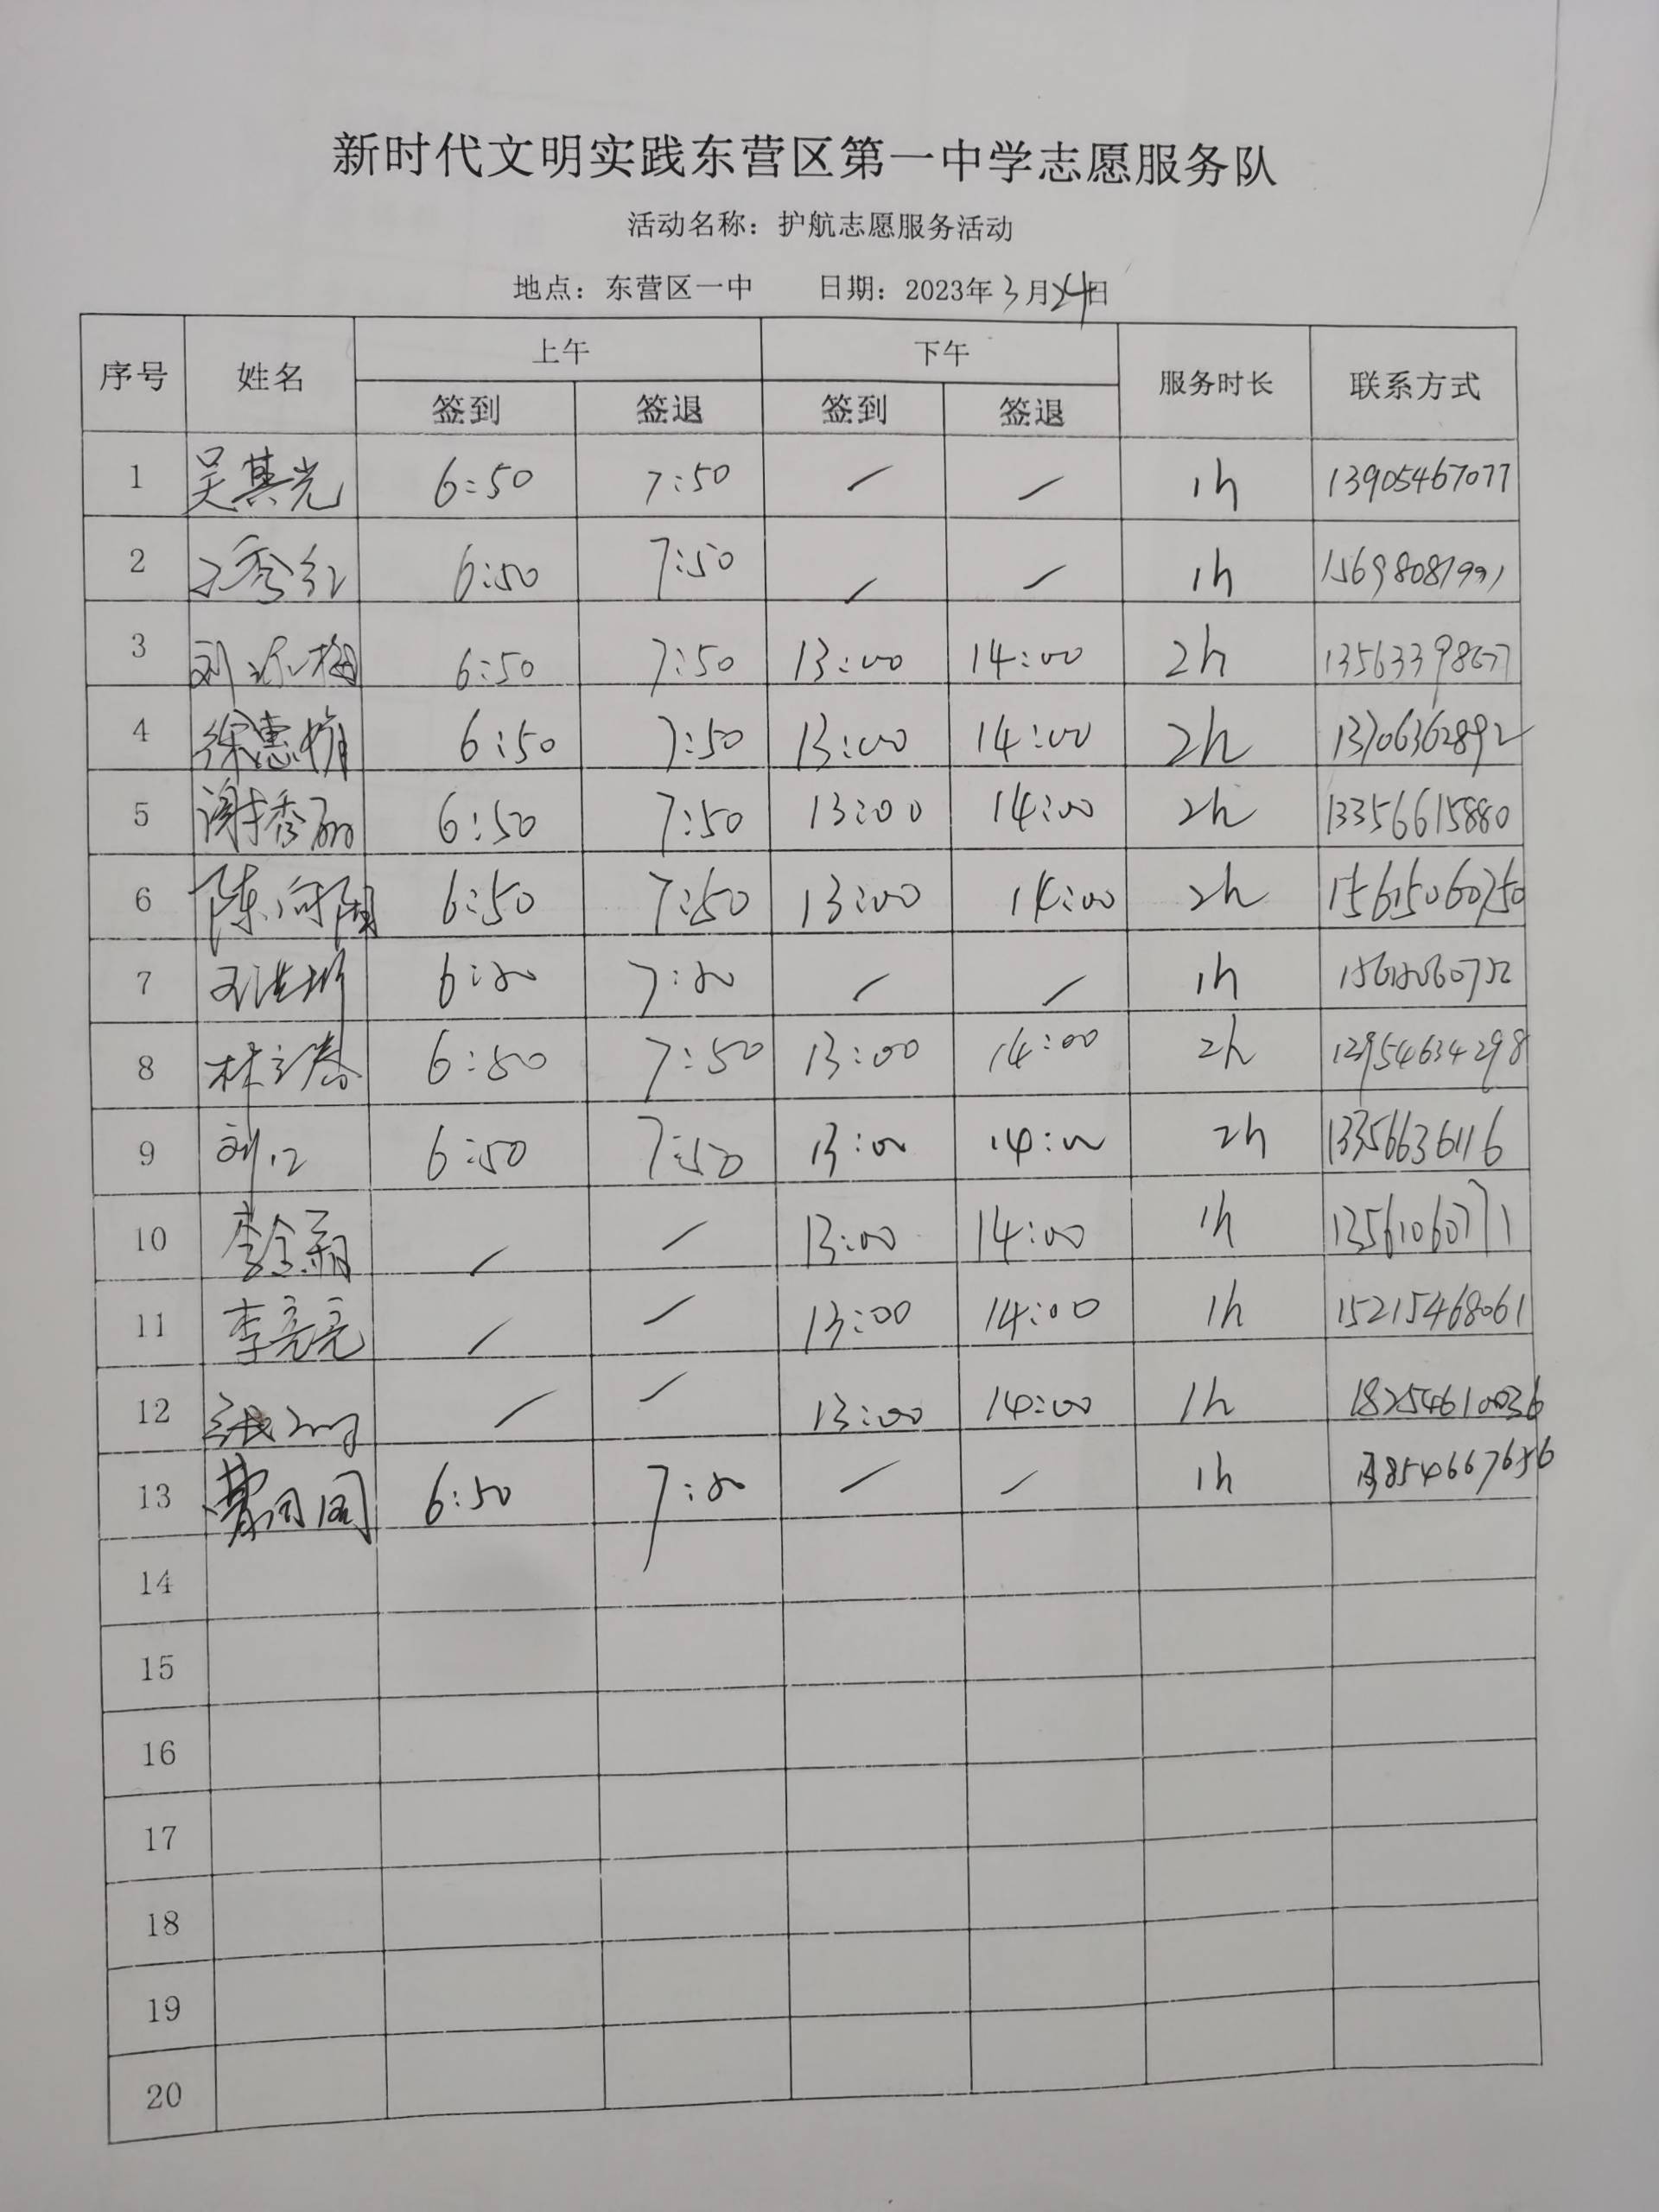 新时代文明实践东营区第一中学志愿服务队
活动名称：护航志愿服务活动
地点：东营区一中 日期：2023年3月24日
序号 姓名 上午 下午 服务时长 联系方式
签到 签退 签到 签退
1 吴其光 6:50 7:50 / / 1h 13905467077
2 6:50 7:50 / / 1h 15698081991
3 6:50 7:50 13:00 14:00 2h
4 徐惠娟 6:50 7:50 13:00 14:00 2h 13706362892
5 谢秀丽 6:50 7:50 13:00 14:00 2h 13356615880
6 陈向阳 6:50 7:50 13:00 14:00 2h 15615060750
7 6:50 7:50 / / 1h
8 6:50 7:50 13:00 14:00 2h
9 6:50 7:50 13:00 14:00 2h 13356636116
10 / / 13:00 14:00 1h 13561060771
11 李亮亮 / / 13:00 14:00 1h 15215468061
12 / / 13:00 14:00 1h 18254610036
13 6:50 7:50 / / 1h
14
15
16
17
18
19
20